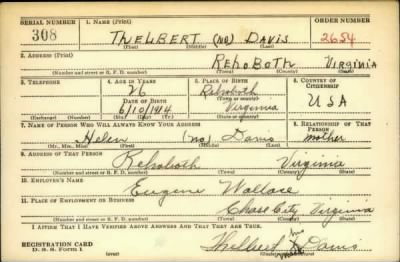 SERIAL NUMBER 1. NAME (Print) ORDER NUMBER
308 THELBERT (NO) DAVIS 2654
(First) (Middle) (Last)
2. ADDRESS (Print)
REHOBOTH VIRGINIA
(Number and street or R. F. D. number) (Town) (County) (State)
3. TELEPHONE 4. AGE IN YEARS 5. PLACE OF BIRTH 6. COUNTRY OF CITIZENSHIP
26 Rehoboth
DATE OF BIRTH (Town or county)
6/10/1914 Virginia USA
(Exchange) (Number) (Mo.) (Day) (Yr.) (State or country)
7. NAME OF PERSON WHO WILL ALWAYS KNOW YOUR ADDRESS 8. RELATIONSHIP OF THAT PERSON
Helen (no) Davis mother
(Mr., Mrs., Miss) (First) (Middle) (Last)
9. ADDRESS OF THAT PERSON
Rehoboth Virginia
(Number and street or R. F. D. number) (Town) (County) (State)
10. EMPLOYER'S NAME
Eugene Wallace
11. PLACE OF EMPLOYMENT OR BUSINESS
Chase City Virginia
(Number and street or R. F. D. number) (Town) (County) (State)
I AFFIRM THAT I HAVE VERIFIED ABOVE ANSWERS AND THAT THEY ARE TRUE.
REGISTRATION CARD
D. S. S. Form 1 (over) Thelbert Davis
mark